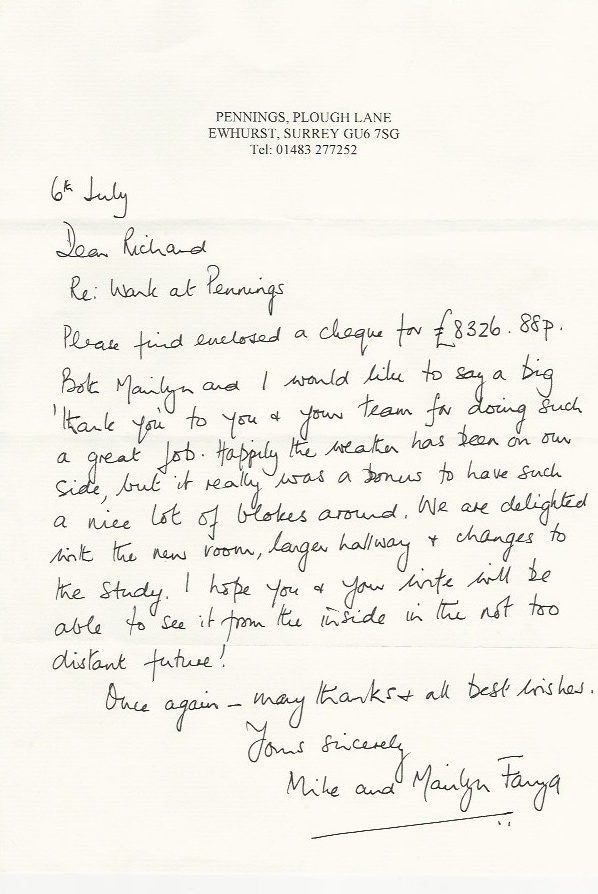 PENNINGS, PLOUGH LANE
EWHURST, SURREY GU6 7SG
Tel: 01483 277252
6th July
Dear Richard
Re: Work at Pennings
Please find enclosed a cheque for £8326.88p.
Both Marilyn and I would like to say a big
'thank you' to you & your team for doing such
a great job. Happily the weather has been on our
side, but it really was a bonus to have such
a nice lot of blokes around. We are delighted
with the new room, larger hallway & changes to
the study. I hope you & your wife will be
able to see it from the inside in the not too
distant future!
Once again – many thanks & all best wishes.
Yours sincerely
Mike and Marilyn